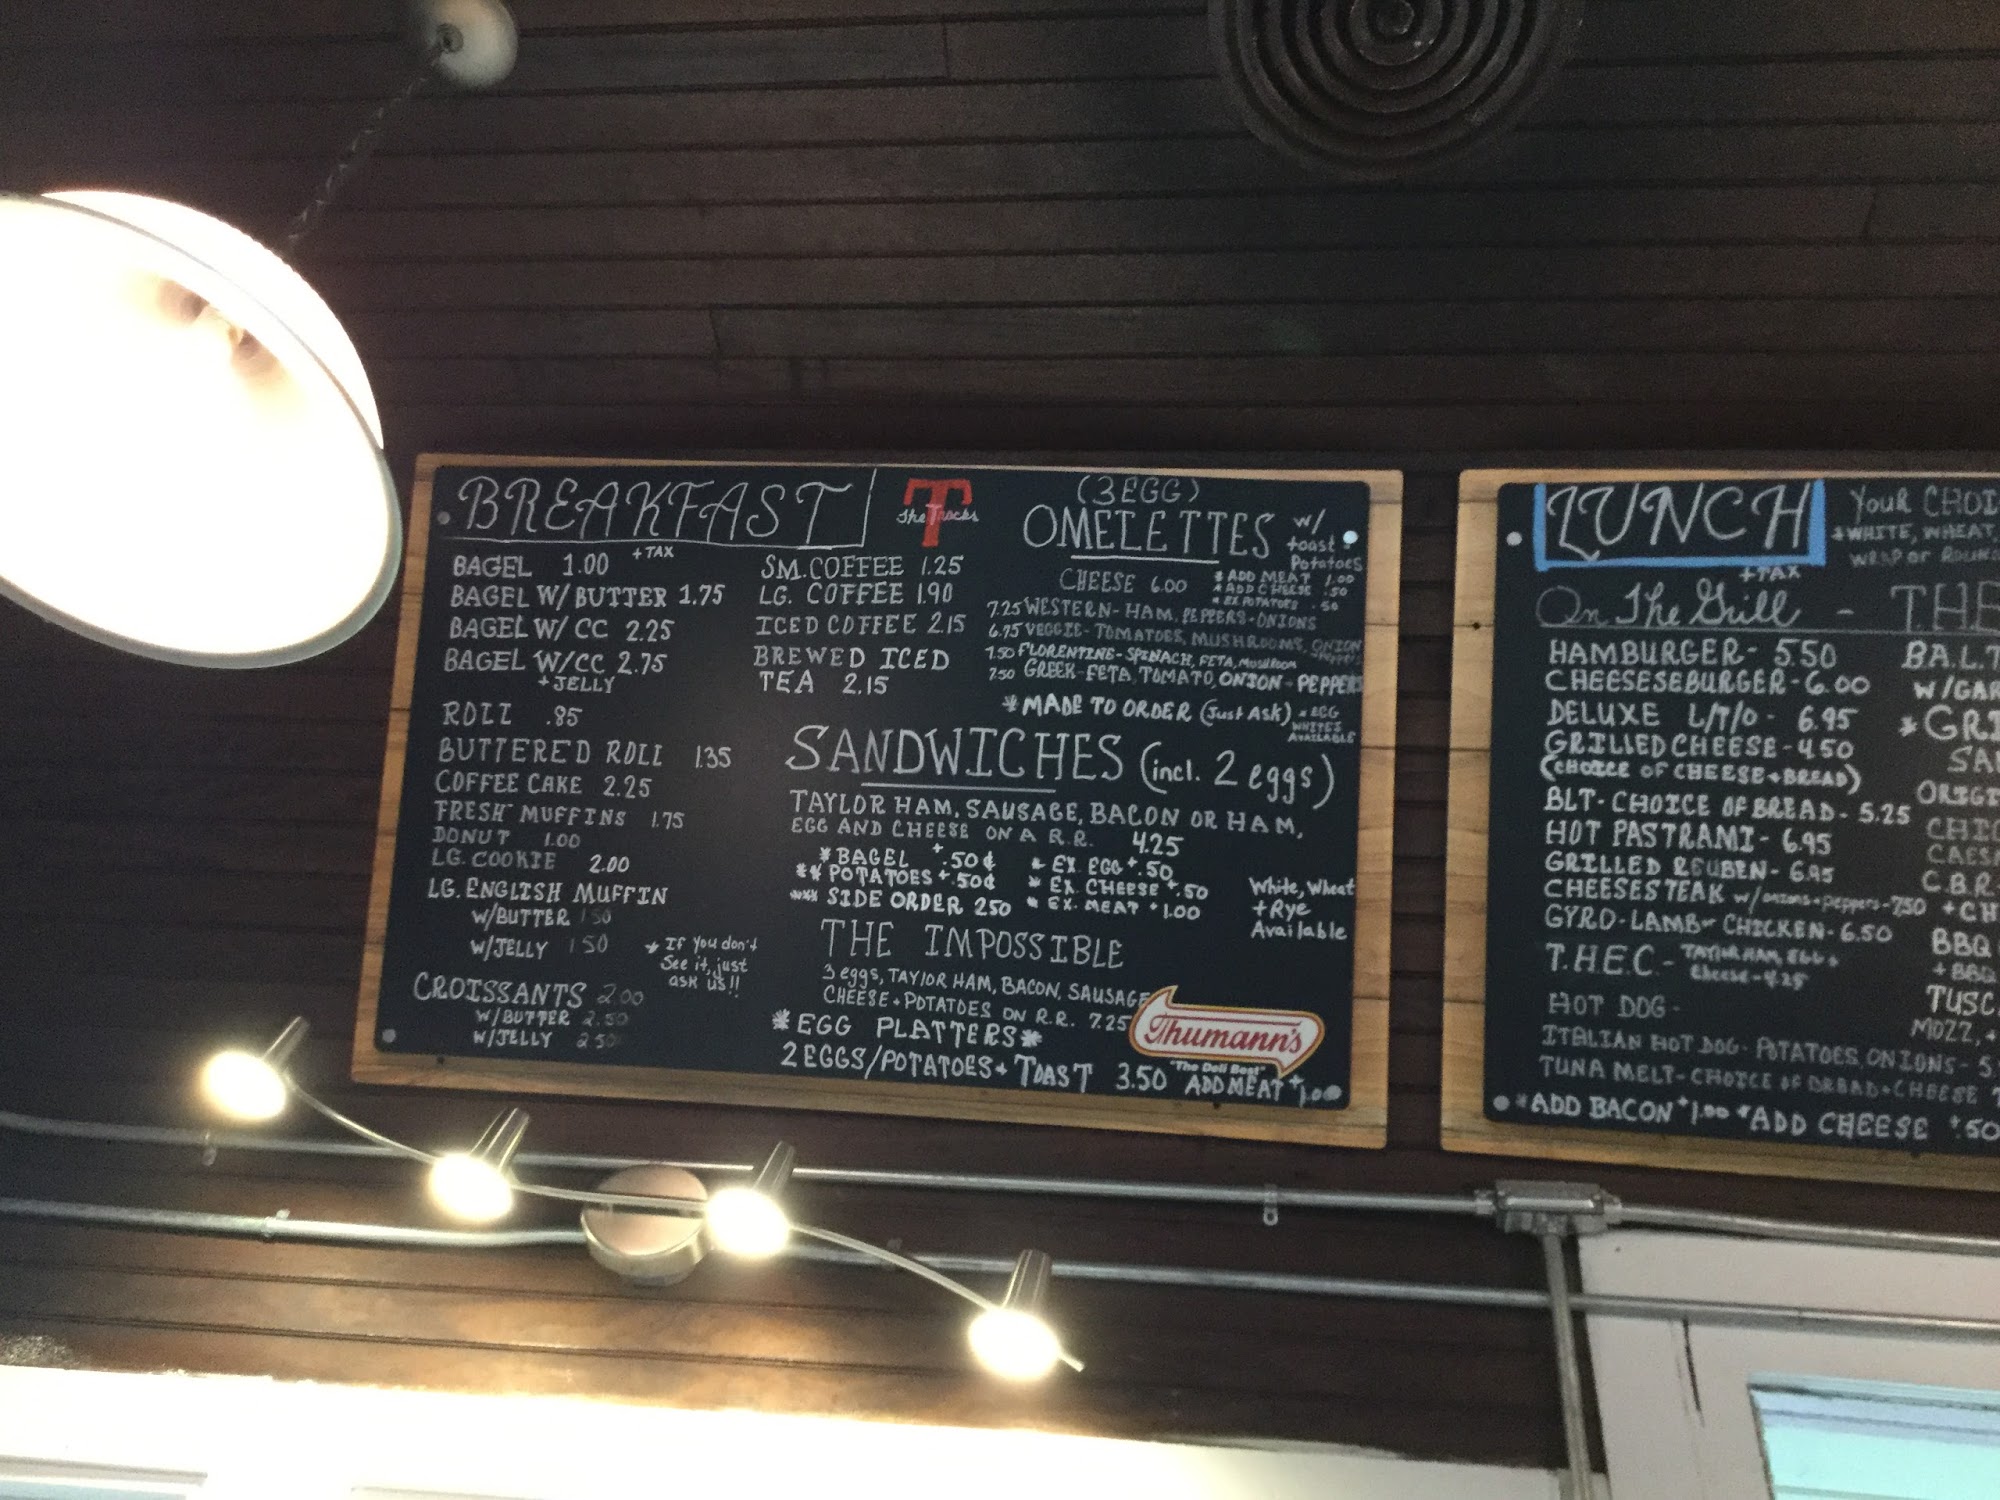 BREAKFAST
+TAX
BAGEL 1.00
BAGEL W/ BUTTER 1.75
BAGEL W/ CC 2.25
BAGEL W/CC 2.75
+JELLY
ROLL .85
BUTTERED ROLL 1.35
COFFEE CAKE 2.25
FRESH MUFFINS 1.75
DONUT 1.00
LG. COOKIE 2.00
LG. ENGLISH MUFFIN
W/BUTTER 1.50
W/JELLY 1.50
* If you don't
See it, just
ask us!!
CROISSANTS 2.00
W/BUTTER 2.50
W/JELLY 2.50
T
The Tracks
SM. COFFEE 1.25
LG. COFFEE 1.90
ICED COFFEE 2.15
BREWED ICED
TEA 2.15
(3 EGG)
OMELETTES w/
toast +
Potatoes
CHEESE 6.00
* ADD MEAT 1.00
* ADD CHEESE .50
* EX POTATOES .50
7.25 WESTERN- HAM, PEPPERS + ONIONS
6.75 VEGGIE- TOMATOES, MUSHROOMS, ONION
7.50 FLORENTINE- SPINACH, FETA, MUSHROOM
7.50 GREEK- FETA, TOMATO, ONION + PEPPERS
* MADE TO ORDER (Just Ask) * EGG
WHITES
AVAILABLE
SANDWICHES (incl. 2 eggs)
TAYLOR HAM, SAUSAGE, BACON OR HAM,
EGG AND CHEESE ON A R.R. 4.25
*BAGEL +.50¢
** POTATOES +.50¢
*** SIDE ORDER 2.50
* EX. EGG +.50
* EX. CHEESE +.50
* EX. MEAT +1.00
White, Wheat
+ Rye
Available
THE IMPOSSIBLE
3 eggs, TAYLOR HAM, BACON, SAUSAGE
CHEESE + POTATOES ON R.R. 7.25
*EGG PLATTERS*
2 EGGS/POTATOES + TOAST 3.50 ADD MEAT +1.00
Thumann's
"The Deli Best"
LUNCH
+TAX
YOUR CHOI
+WHITE, WHEAT,
WRAP or
On The Grill - THE
HAMBURGER- 5.50
CHEESESEBURGER-6.00
DELUXE L/T/O- 6.95
GRILLED CHEESE-4.50
(CHOICE OF CHEESE + BREAD)
BLT- CHOICE OF BREAD- 5.25
HOT PASTRAMI- 6.95
GRILLED REUBEN- 6.95
CHEESESTEAK w/onions+peppers-7.50
GYRO-LAMB or CHICKEN-6.50
T.H.E.C.- TAYLOR HAM, EGG +
Cheese-4.25
HOT DOG-
ITALIAN HOT DOG- POTATOES, ONIONS- 5.
TUNA MELT-CHOICE OF BREAD + CHEESE
*ADD BACON +1.00 *ADD CHEESE +.50
B.A.L.T
W/GAR
*GRI
SA
ORIGI
CHIC
CAESA
C.B.R.
+CH
BBQ
+BBQ
TUSC
MOZZ, +